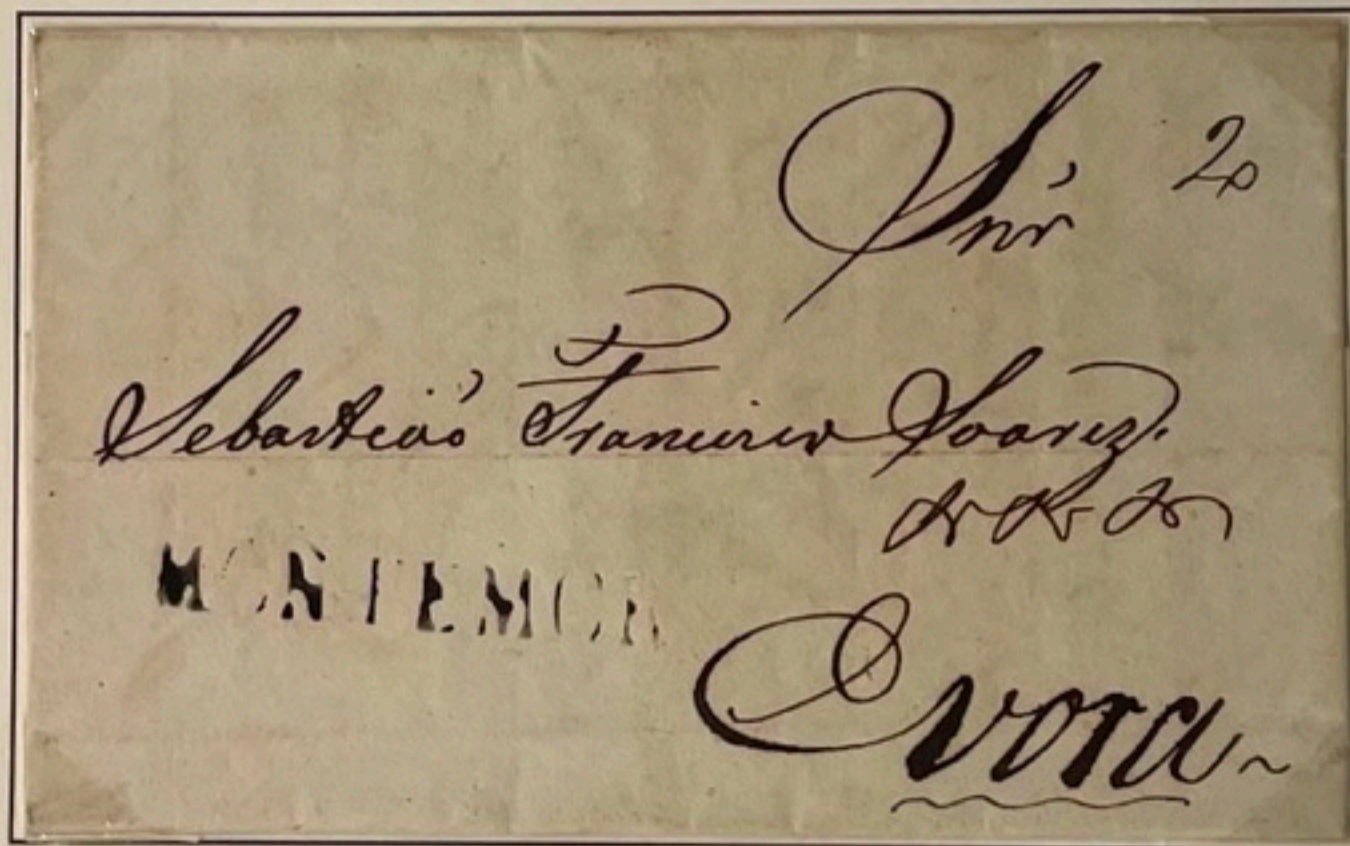 Snr 20
Sebastiaõ Francisco Soarez.
&. &. &.
MONTEMOR
Evora~